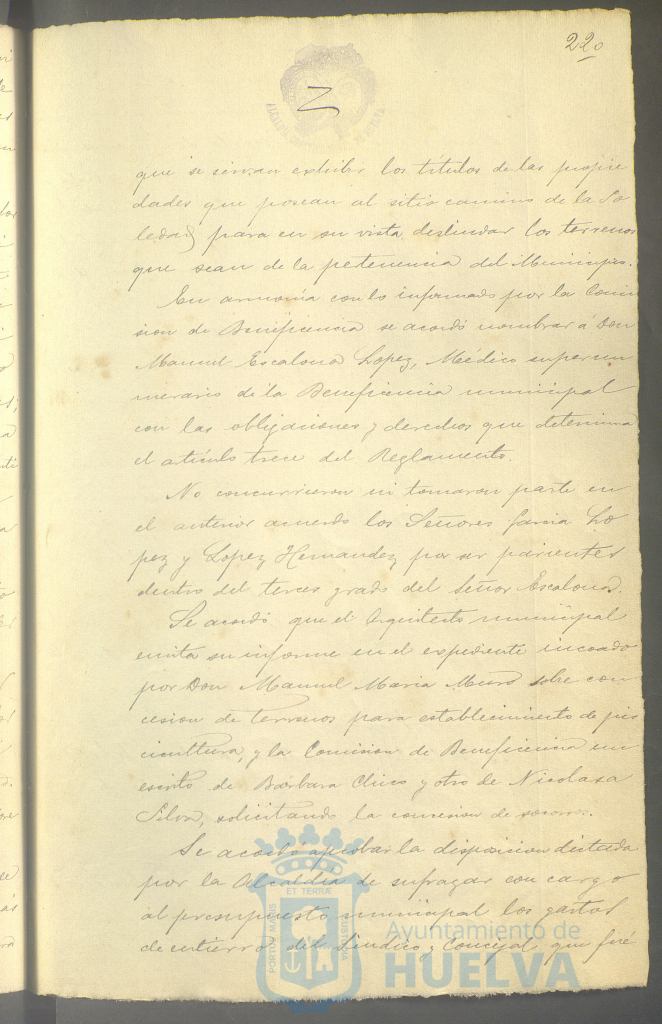 220
que se sirvan exhibir los titulos de las propie
dades que posean al sitio camino de la So
ledad para en su vista, deslindar los terrenos
que sean de la petenencia del Municipio.
En armonía con lo informado por la Comi
sion de Beneficencia se acordó nombrar á Don
Manuel Escalona Lopez, Médico supernu
merario de la Beneficencia municipal
con las obligaciones y derechos que determina
el artículo trece del Reglamento.
No concurrieron ni tomaron parte en
el anterior acuerdo los Señores Garcia Lo
pez y Lopez Hernandez por ser parientes
dentro del tercer grado del Señor Escalona.
Se acordó que el Arquitecto municipal
emita su informe en el expediente incoado
por Don Manuel Maria Muro sobre con
cesion de terrenos para establecimiento de pis
cicultura, y la Comision de Beneficencia un
escrito de Bárbara Chico y otro de Nicolasa
Silva, solicitando la concesion de socorros.
Se acordó aprobar la disposicion dictada
por la Alcaldía de sufragar con cargo
al presupuesto municipal los gastos
de entierro del Síndico y Concejal que fué
PORTUS MARIS
ET TERRÆ
CUSTODIA
Ayuntamiento de
HUELVA